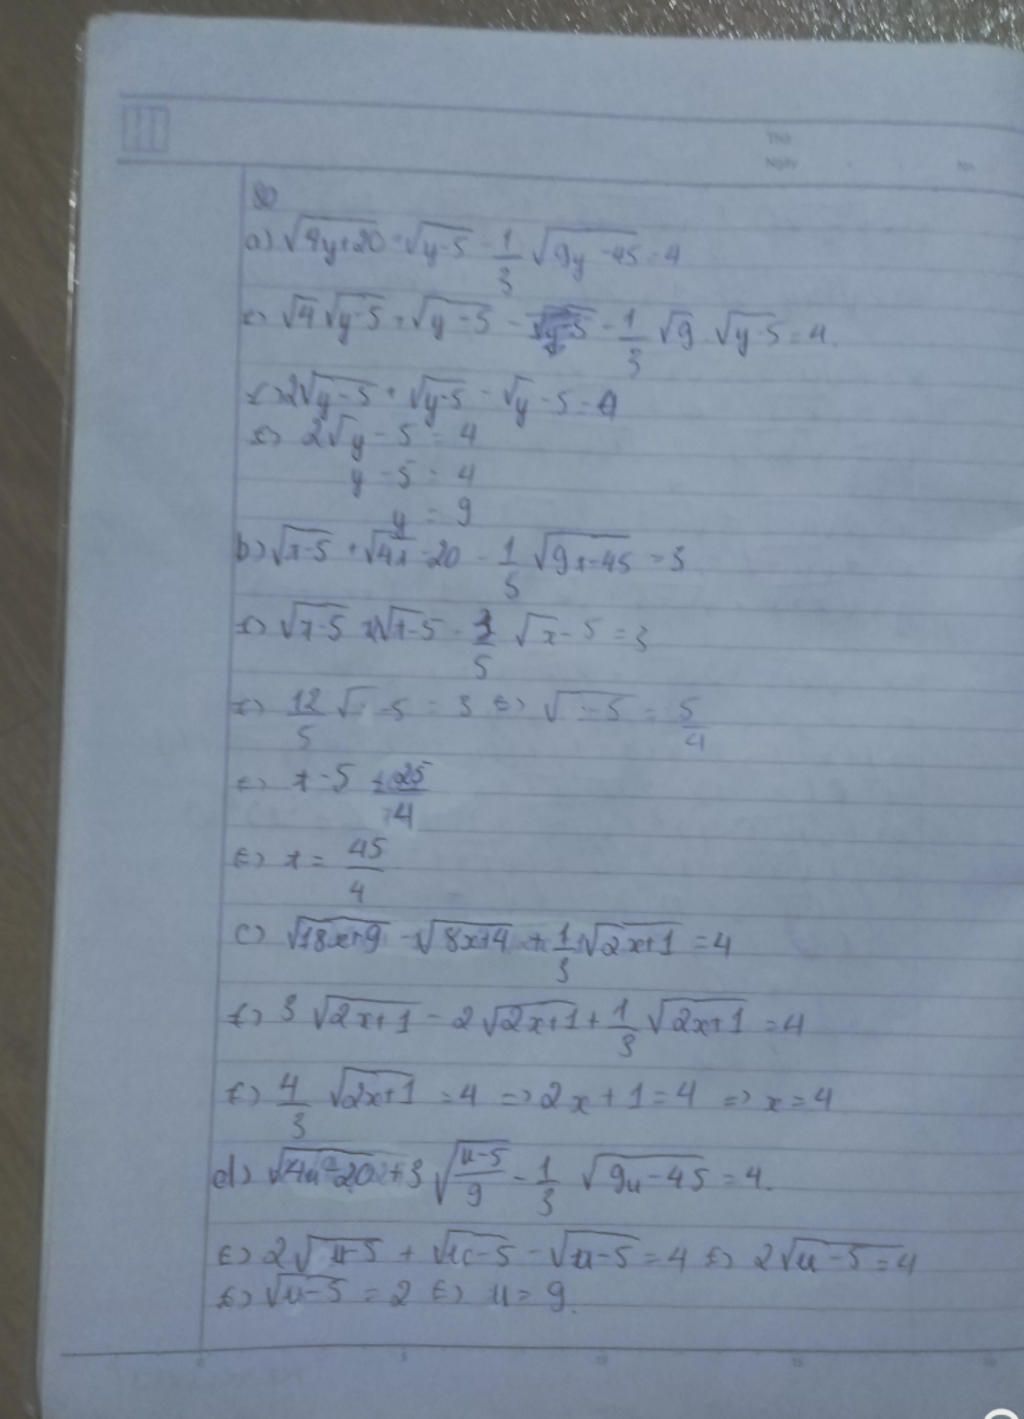 80
a) √4y+20 + √y-5 - 1/3 √9y-45 = 4
<=> √4 √y-5 + √y-5 - 1/3 √9 . √y-5 = 4.
<=> 2√y-5 + √y-5 - √y-5 = 4
<=> 2√y-5 = 4
y-5 = 4
y = 9
b) √x-5 + √4x-20 - 1/5 √9x-45 = 3
<=> √x-5 + √x-5 - 3/5 √x-5 = 3
<=> 12/5 √ -5 = 3 <=> √ -5 = 5/4
<=> x-5 = 25/4
<=> x = 45/4
c) √18x+9 - √8x+4 + 1/3 √2x+1 = 4
<=> 3√2x+1 - 2√2x+1 + 1/3 √2x+1 = 4
<=> 4/3 √2x+1 = 4 => 2x+1 = 4 => x = 4
d) √4u-20 + 3 √u-5/9 - 1/3 √9u-45 = 4.
<=> 2√u-5 + √u-5 - √u-5 = 4 <=> 2√u-5 = 4
<=> √u-5 = 2 <=> u = 9.